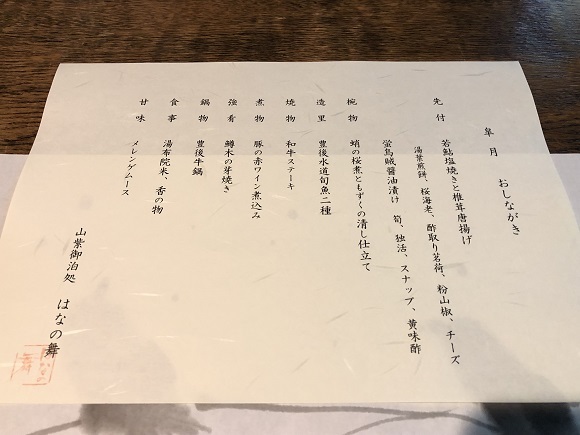 皐月　おしながき
先付　若鮎塩焼きと椎茸唐揚げ
湯葉煎餅、桜海老、酢取り茗荷、粉山椒、チーズ
蛍烏賊醤油漬け　筍、独活、スナップ、黄味酢
椀物　蛸の桜煮ともずくの清し仕立て
造里　豊後水道旬魚二種
焼物　和牛ステーキ
煮物　豚の赤ワイン煮込み
強肴　鱒木の芽焼き
鍋物　豊後牛鍋
食事　湯布院米、香の物
甘味　メレンゲムース
山紫御泊処　はなの舞